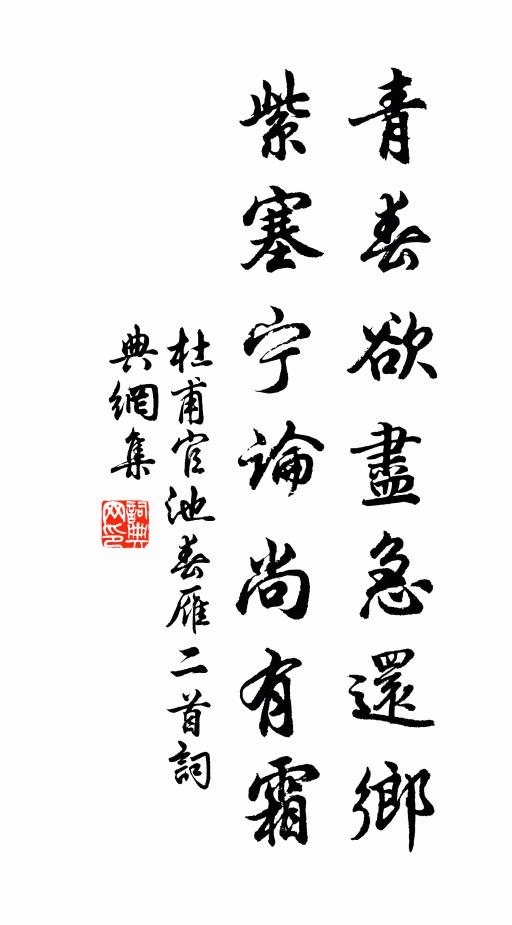 青春欲盡急還鄉
紫塞宁論尚有霜
杜甫官池春雁二首詞
典網集
詞典
网印